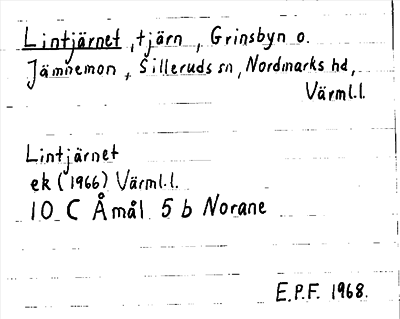 Lintjärnet, tjärn, Grinsbyn o.
Jämnemon, Silleruds sn, Nordmarks hd,
Värml.l.
Lintjärnet
ek (1966) Värml.l.
10 C Åmål 5 b Norane
E.P.F. 1968.